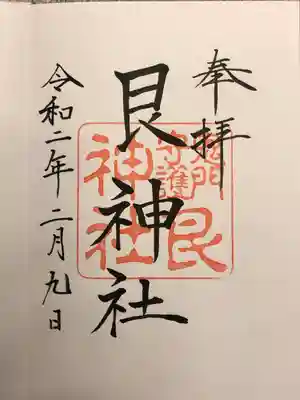 奉拝
艮神社
鬼門
守護
艮
神社
令和二年二月九日